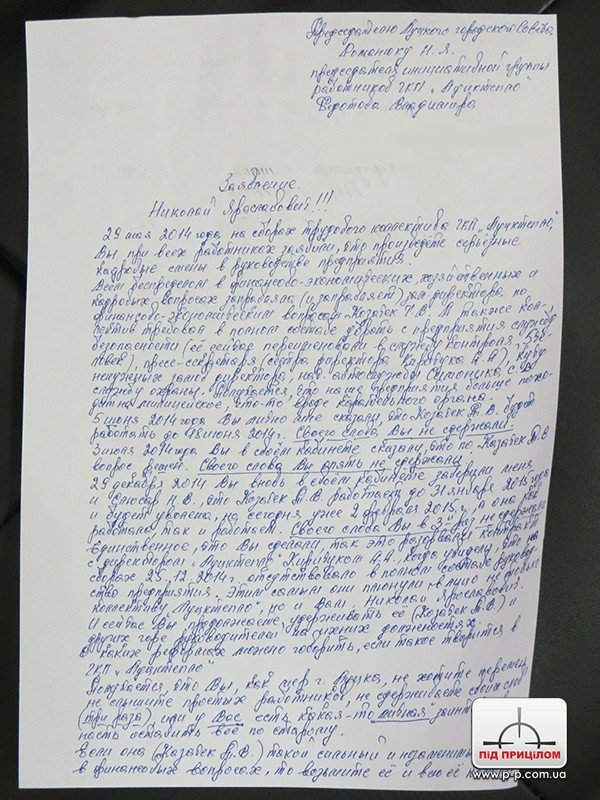 Председателю Луцкого городского Совета
Романюку Н.Я.
председателя инициативной группы
работников ГКП "Луцктепло"
Федотова Владимира
Заявление.
Николай Ярославович!!!
29 мая 2014 года, на сборах трудового коллектива ГКП "Луцктепло",
Вы при всех работниках заявили, что произведёте серьёзные
кадровые смены в руководстве предприятия.
Всем беспределом в финансово-экономических, хозяйственных и
кадровых вопросах заправляла (и заправляет) зам директора по
финансово-экономическим вопросам Козабек Т.В. А также кол-
лектив требовал в полном составе убрать с предприятия службу
безопасности (её сейчас переименовали в службу контроля
пресс-секретаря (сестра директора
ненужных замов директора, нач. автослужбы
службу охраны. Получается, что наше предприятие больше похо-
дит на милицейское, что-то вроде карательного органа.
5 июня 2014 года Вы лично мне сказали, что Козабек Т.В. будет
работать до июня 2014г. Своего слова Вы не сдержали.
3 июля 2014 года Вы в своём кабинете сказали, что по Козабек Т.В
вопрос решён. Своего слова Вы опять не сдержали.
29 декабря 2014 Вы вновь в своём кабинете заверили меня
и Слюсар Н.В., что Козабек Т.В. работает до 31 января 2015 года
и будет уволена, но сегодня уже 2 февраля 2015г., а она как
работала, так и работает. Своего слова Вы в 3й раз не сдержали
Единственное, что Вы сделали, так это разорвали контракт
с директором "Луцктепло" А.А., когда увидели, что на
сборах 25.12.2014г. отсутствовало в полном составе руковод-
ство предприятия. Этим самым они плюнули в лицо не только
коллективу "Луцктепло", но и Вам, Николай Ярославович.
И сейчас Вы продолжаете удерживать её (Козабек Т.В) и
других горе руководителей на ихних должностях.
О каких реформах можно говорить, если такое творится в
ГКП "Луцктепло"
Получается, что Вы, как мэр г. Луцка, не хотите перемен,
не слышите простых работников, не сдерживаете своих слов
(три раза), или у Вас есть какая-то "личная"
ность оставить всё по старому.
Если она (Козабек Т.В.) такой сильный и
в финансовых вопросах, то возьмите её и всю её
ПІД ПРИЦІЛОМ
www.p-p.com.ua